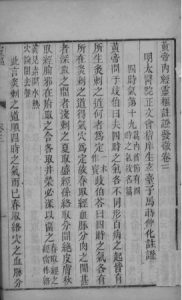 黃帝內經靈樞註證發微卷三
明太醫院正文會稽庠生玄臺子馬蒔仲化註證
四時氣第十九
黃帝問于岐伯曰夫四時之氣各不同形百病之起皆有
所生灸刺之道何者爲定岐伯荅曰四時之氣各有
所在灸刺之道得氣穴爲定故春取經血脈分肉之間甚
者深取之間者淺刺之夏取盛經孫絡取分間絕皮膚秋
取經腧邪在府取之合冬取井滎必深以留之
此言灸刺之道順四時之氣而已春取絡穴之血脈分